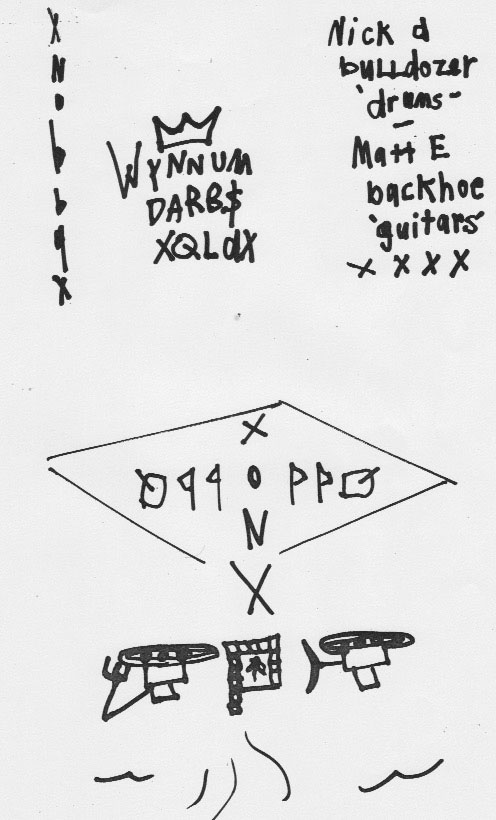 X
N
D
b
b
q
X
WYNNUM
DARB$
XQLdX
Nick d
bulldozer
'drums-
Matt E
backhoe
'guitars'
x x x x
X
O
N
X